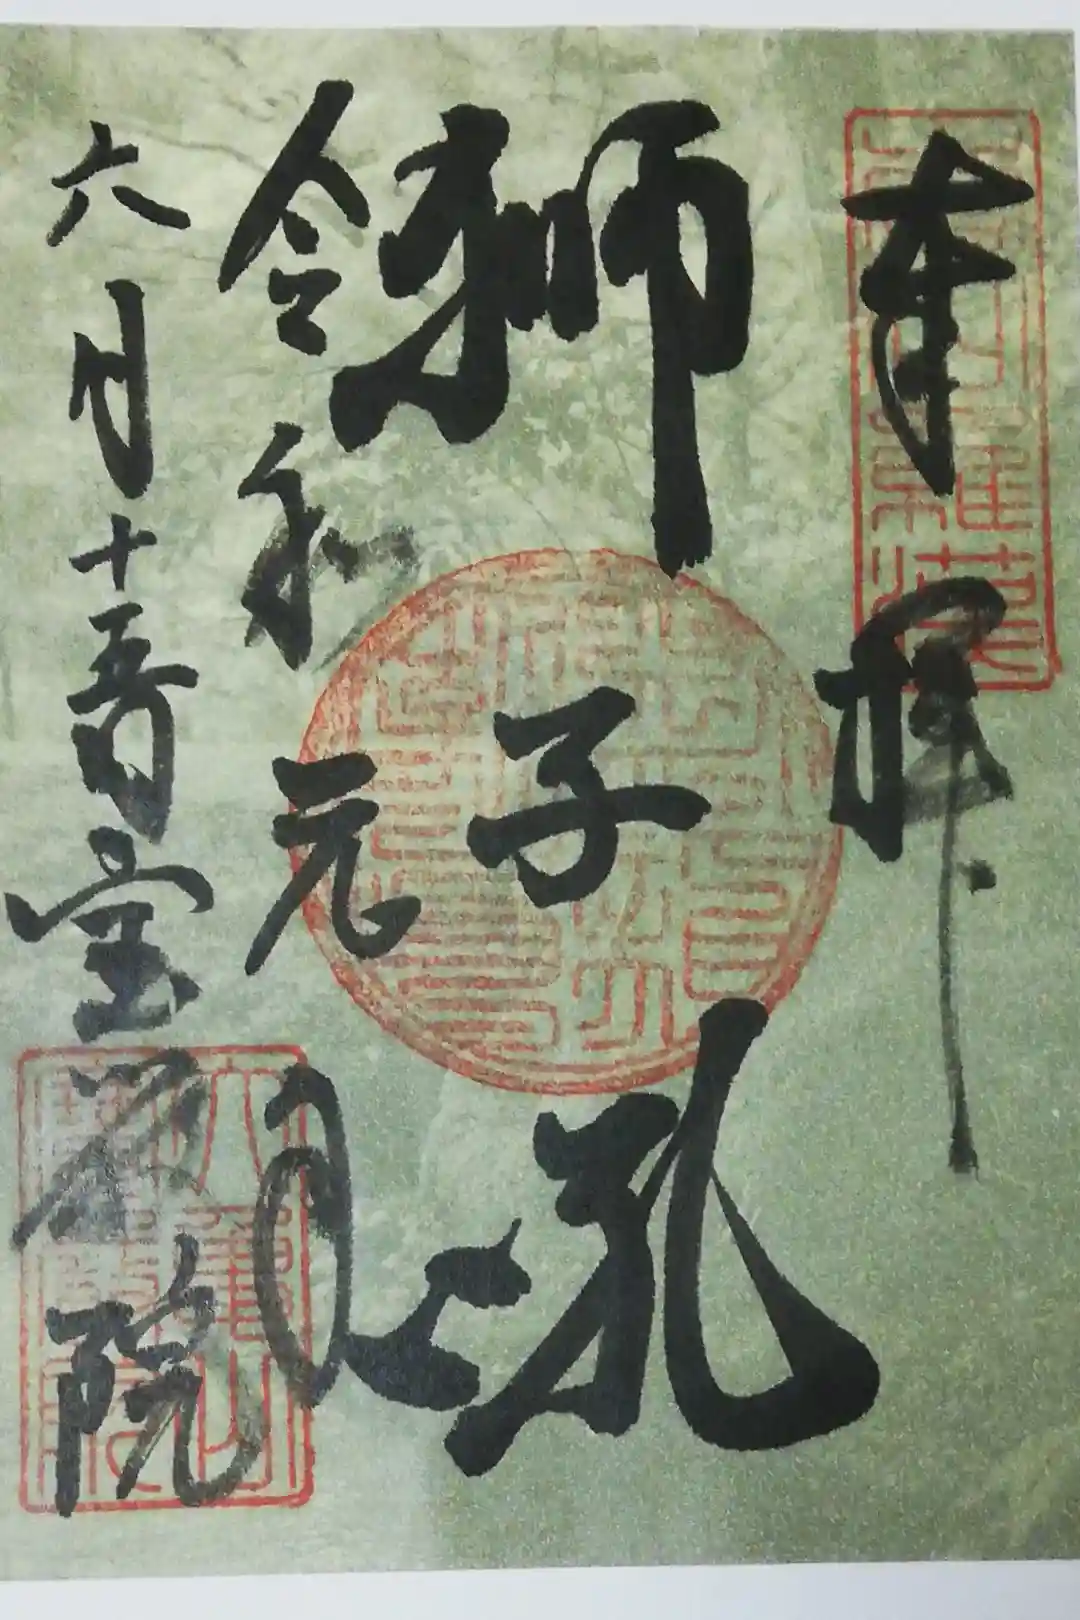 奉拝
獅子吼
令和元年
六月十五日宝厳院